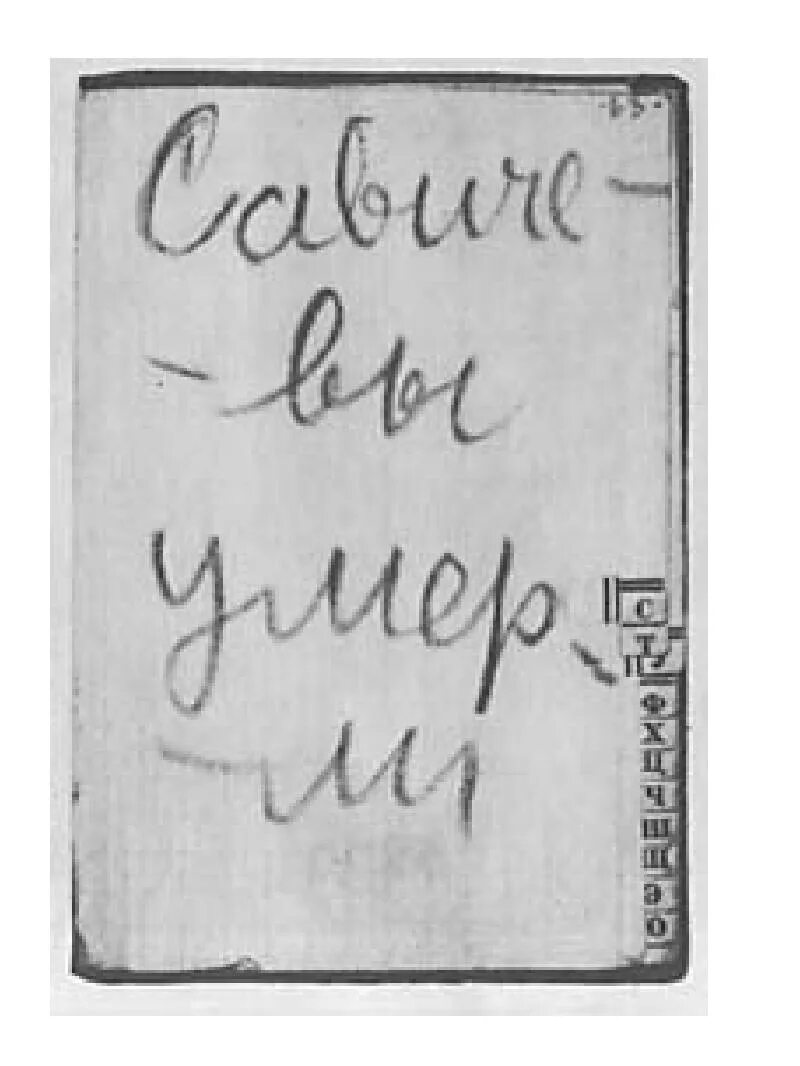 Савиче-
-вы
умер-
-ли
С
Т
Ф
Х
Ц
Ч
Ш
Щ
Э